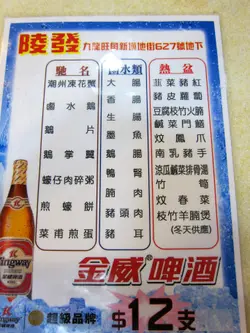 陵發
九龍旺角新填地街627號地下
馳名
潮州凍花蟹
鹵水鵝
鵝片
鵝掌翼
蠔仔肉碎粥
煎蠔餅
菜甫煎蛋
鹵水類
大腸
生腸
墨魚
鵝腸
鴨腎
腩肉
豬頭肉
豬耳
熱盆
韮菜豬紅
豬皮蘿蔔
豆腐枝竹火腩
鹹菜門鱔
炆鳳爪
南乳豬手
涼瓜鹹菜排骨湯
竹筍
炆春菜
枝竹羊腩煲
(冬天供應)
金威®啤酒
Kingway
超級品牌
$12支